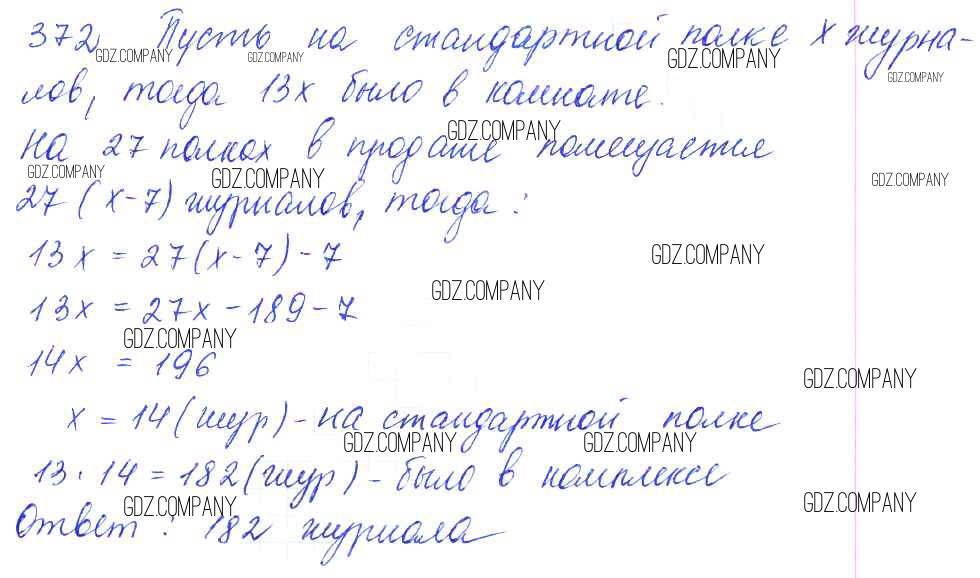 372 Пусть на стандартной полке x журна-
GDZ.COMPANY GDZ.COMPANY GDZ.COMPANY GDZ.COMPANY
лов, тогда 13x было в комнате.
На 27 полках в продаже помещается
GDZ.COMPANY
GDZ.COMPANY GDZ.COMPANY GDZ.COMPANY
27 (x-7) журналов, тогда:
13x = 27(x-7)-7
GDZ.COMPANY
13x = 27x-189-7
GDZ.COMPANY
GDZ.COMPANY
14x = 196
GDZ.COMPANY
x = 14 (жур) - на стандартной полке
GDZ.COMPANY GDZ.COMPANY
13 · 14 = 182 (жур) - было в комплексе
GDZ.COMPANY GDZ.COMPANY
Ответ: 182 журнала